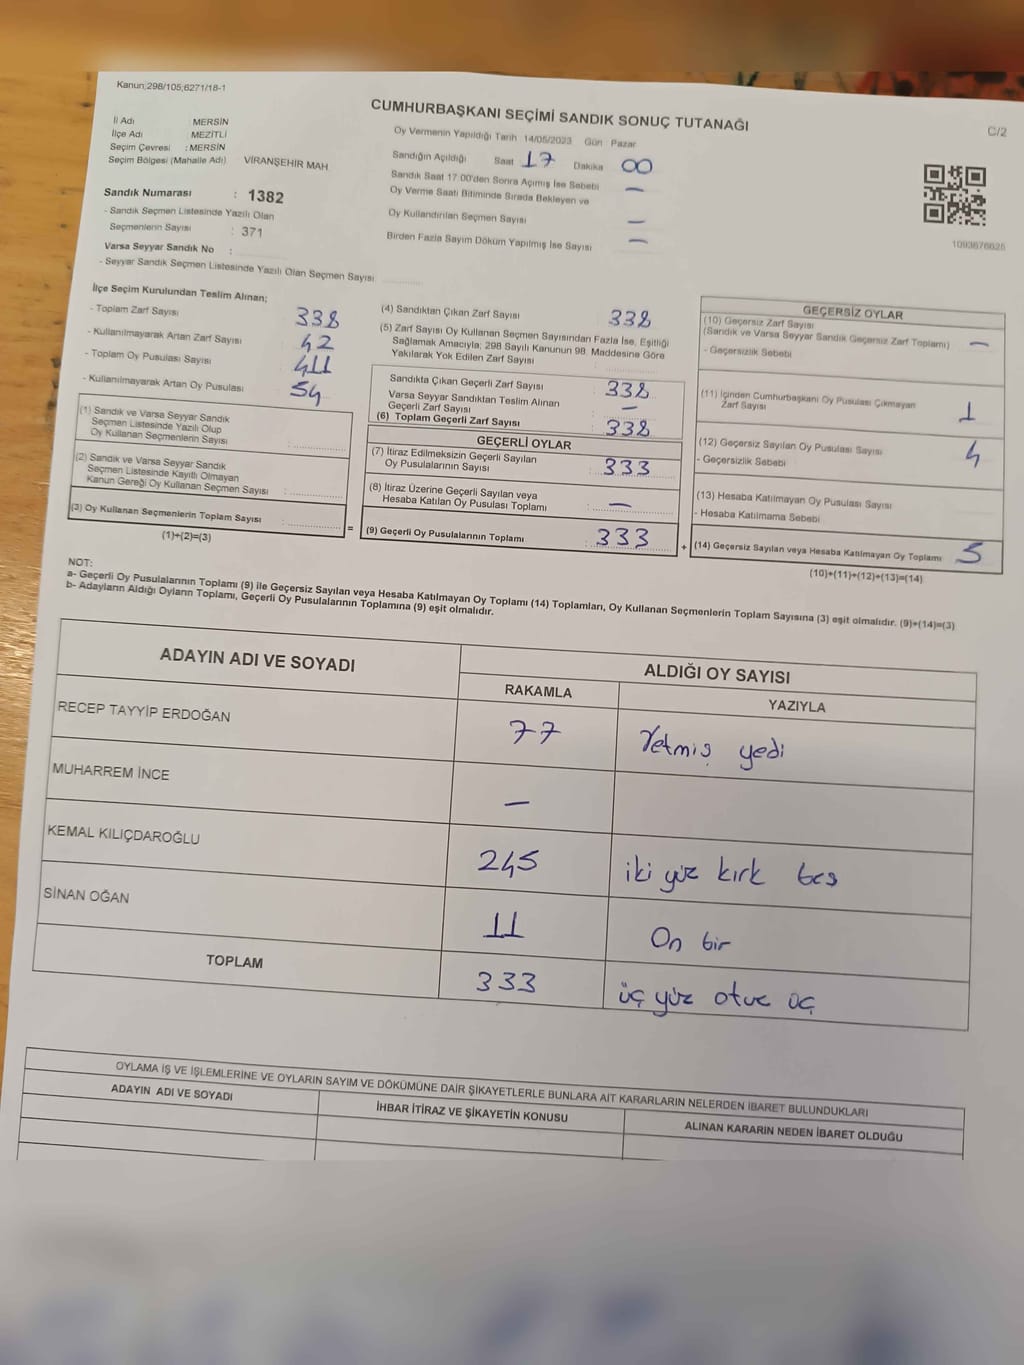 Kanun;298/105;6271/18-1
CUMHURBAŞKANI SEÇİMİ SANDIK SONUÇ TUTANAĞI
C/2
İl Adı : MERSİN
İlçe Adı : MEZİTLİ
Seçim Çevresi : MERSİN
Seçim Bölgesi (Mahalle Adı) VİRANŞEHİR MAH
Sandık Numarası : 1382
- Sandık Seçmen Listesinde Yazılı Olan
Seçmenlerin Sayısı : 371
Varsa Seyyar Sandık No :
- Seyyar Sandık Seçmen Listesinde Yazılı Olan Seçmen Sayısı:
Oy Vermenin Yapıldığı Tarih 14/05/2023 Gün Pazar
Sandığın Açıldığı Saat 17 Dakika 00
Sandık Saat 17:00'den Sonra Açımış İse Sebebi —
Oy Verme Saati Bitiminde Sırada Bekleyen ve
Oy Kullandırılan Seçmen Sayısı —
Birden Fazla Sayım Döküm Yapılmış İse Sayısı —
1093676625
İlçe Seçim Kurulundan Teslim Alınan;
- Toplam Zarf Sayısı 338
- Kullanılmayarak Artan Zarf Sayısı 42
- Toplam Oy Pusulası Sayısı 411
- Kullanılmayarak Artan Oy Pusulası 54
(1) Sandık ve Varsa Seyyar Sandık
Seçmen Listesinde Yazılı Olup
Oy Kullanan Seçmenlerin Sayısı :
(2) Sandık ve Varsa Seyyar Sandık
Seçmen Listesinde Kayıtlı Olmayan
Kanun Gereği Oy Kullanan Seçmen Sayısı :
(3) Oy Kullanan Seçmenlerin Toplam Sayısı :
(1)+(2)=(3)
=
(4) Sandıktan Çıkan Zarf Sayısı : 338
(5) Zarf Sayısı Oy Kullanan Seçmen Sayısından Fazla İse, Eşitliği
Sağlamak Amacıyla; 298 Sayılı Kanunun 98. Maddesine Göre
Yakılarak Yok Edilen Zarf Sayısı :
Sandıkta Çıkan Geçerli Zarf Sayısı : 338
Varsa Seyyar Sandıktan Teslim Alınan
Geçerli Zarf Sayısı : —
(6) Toplam Geçerli Zarf Sayısı : 338
GEÇERLİ OYLAR
(7) İtiraz Edilmeksizin Geçerli Sayılan
Oy Pusulalarının Sayısı : 333
(8) İtiraz Üzerine Geçerli Sayılan veya
Hesaba Katılan Oy Pusulası Toplamı : —
(9) Geçerli Oy Pusulalarının Toplamı : 333
+
GEÇERSİZ OYLAR
(10) Geçersiz Zarf Sayısı
(Sandık ve Varsa Seyyar Sandık Geçersiz Zarf Toplamı) —
- Geçersizlik Sebebi
(11) İçinden Cumhurbaşkanı Oy Pusulası Çıkmayan
Zarf Sayısı 1
(12) Geçersiz Sayılan Oy Pusulası Sayısı 4
- Geçersizlik Sebebi
(13) Hesaba Katılmayan Oy Pusulası Sayısı
- Hesaba Katılmama Sebebi
(14) Geçersiz Sayılan veya Hesaba Katılmayan Oy Toplamı 5
(10)+(11)+(12)+(13)=(14)
NOT:
a- Geçerli Oy Pusulalarının Toplamı (9) ile Geçersiz Sayılan veya Hesaba Katılmayan Oy Toplamı (14) Toplamları, Oy Kullanan Seçmenlerin Toplam Sayısına (3) eşit olmalıdır. (9)+(14)=(3)
b- Adayların Aldığı Oyların Toplamı, Geçerli Oy Pusulalarının Toplamına (9) eşit olmalıdır.
ADAYIN ADI VE SOYADI
ALDIĞI OY SAYISI
RAKAMLA YAZIYLA
RECEP TAYYİP ERDOĞAN 77 Yetmiş yedi
MUHARREM İNCE —
KEMAL KILIÇDAROĞLU 245 iki yüz kırk beş
SİNAN OĞAN 11 On bir
TOPLAM 333 üç yüz otuz üç
OYLAMA İŞ VE İŞLEMLERİNE VE OYLARIN SAYIM VE DÖKÜMÜNE DAİR ŞİKAYETLERLE BUNLARA AİT KARARLARIN NELERDEN İBARET BULUNDUKLARI
ADAYIN ADI VE SOYADI İHBAR İTİRAZ VE ŞİKAYETİN KONUSU ALINAN KARARIN NEDEN İBARET OLDUĞU